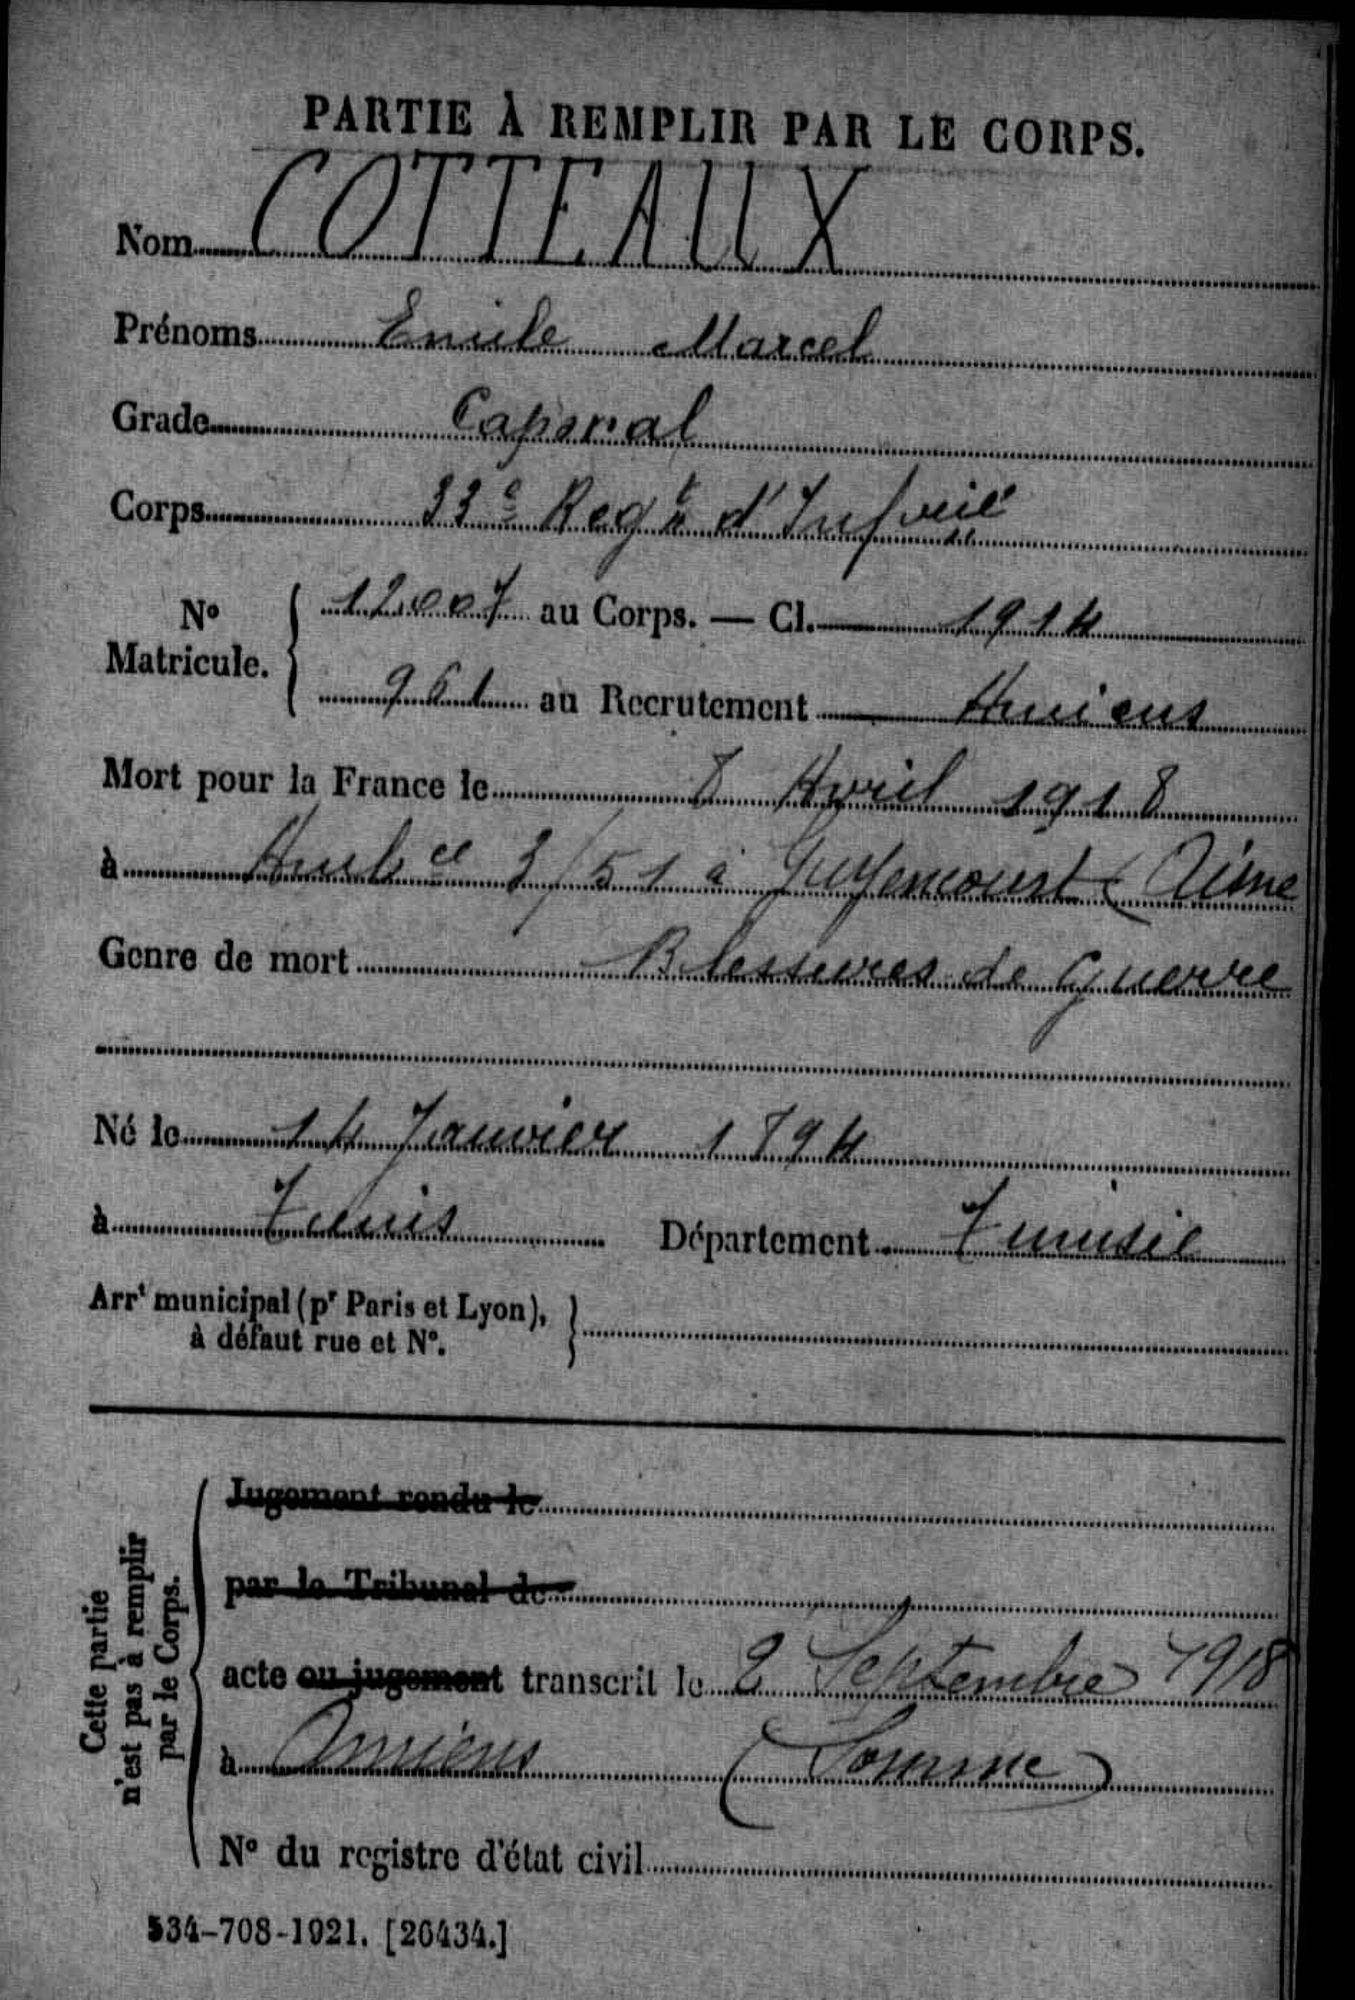 PARTIE À REMPLIR PAR LE CORPS.
Nom COTTEAUX
Prénoms Emile Marcel
Grade Caporal
Corps 33e Regt d'Infrie
No Matricule. 12.007 au Corps. — Cl. 1914
961 au Recrutement Amiens
Mort pour la France le 8 Avril 1918
à Ambce 3/51 à Guyencourt (Aisne
Genre de mort Blessures de Guerre
Né le 14 Janvier 1894
à Tunis Département Tunisie
Arrt municipal (pr Paris et Lyon),
à défaut rue et No.
Cette partie
n'est pas à remplir
par le Corps.
Jugement rendu le
par le Tribunal de
acte ou jugement transcrit le 2 Septembre 1918
à Amiens (Somme)
No du registre d'état civil
534-708-1921. [26434.]